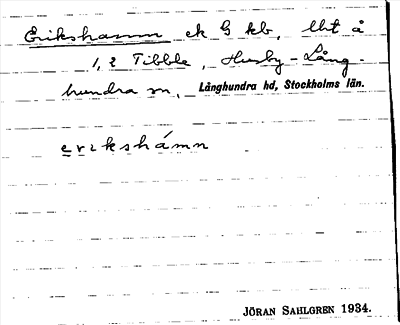 Erikshamn ek G kb, lht å
1, 2 Tibble, Husby-Lång-
hundra sn, Långhundra hd, Stockholms län.
erikshámn
JÖRAN SAHLGREN 1934.